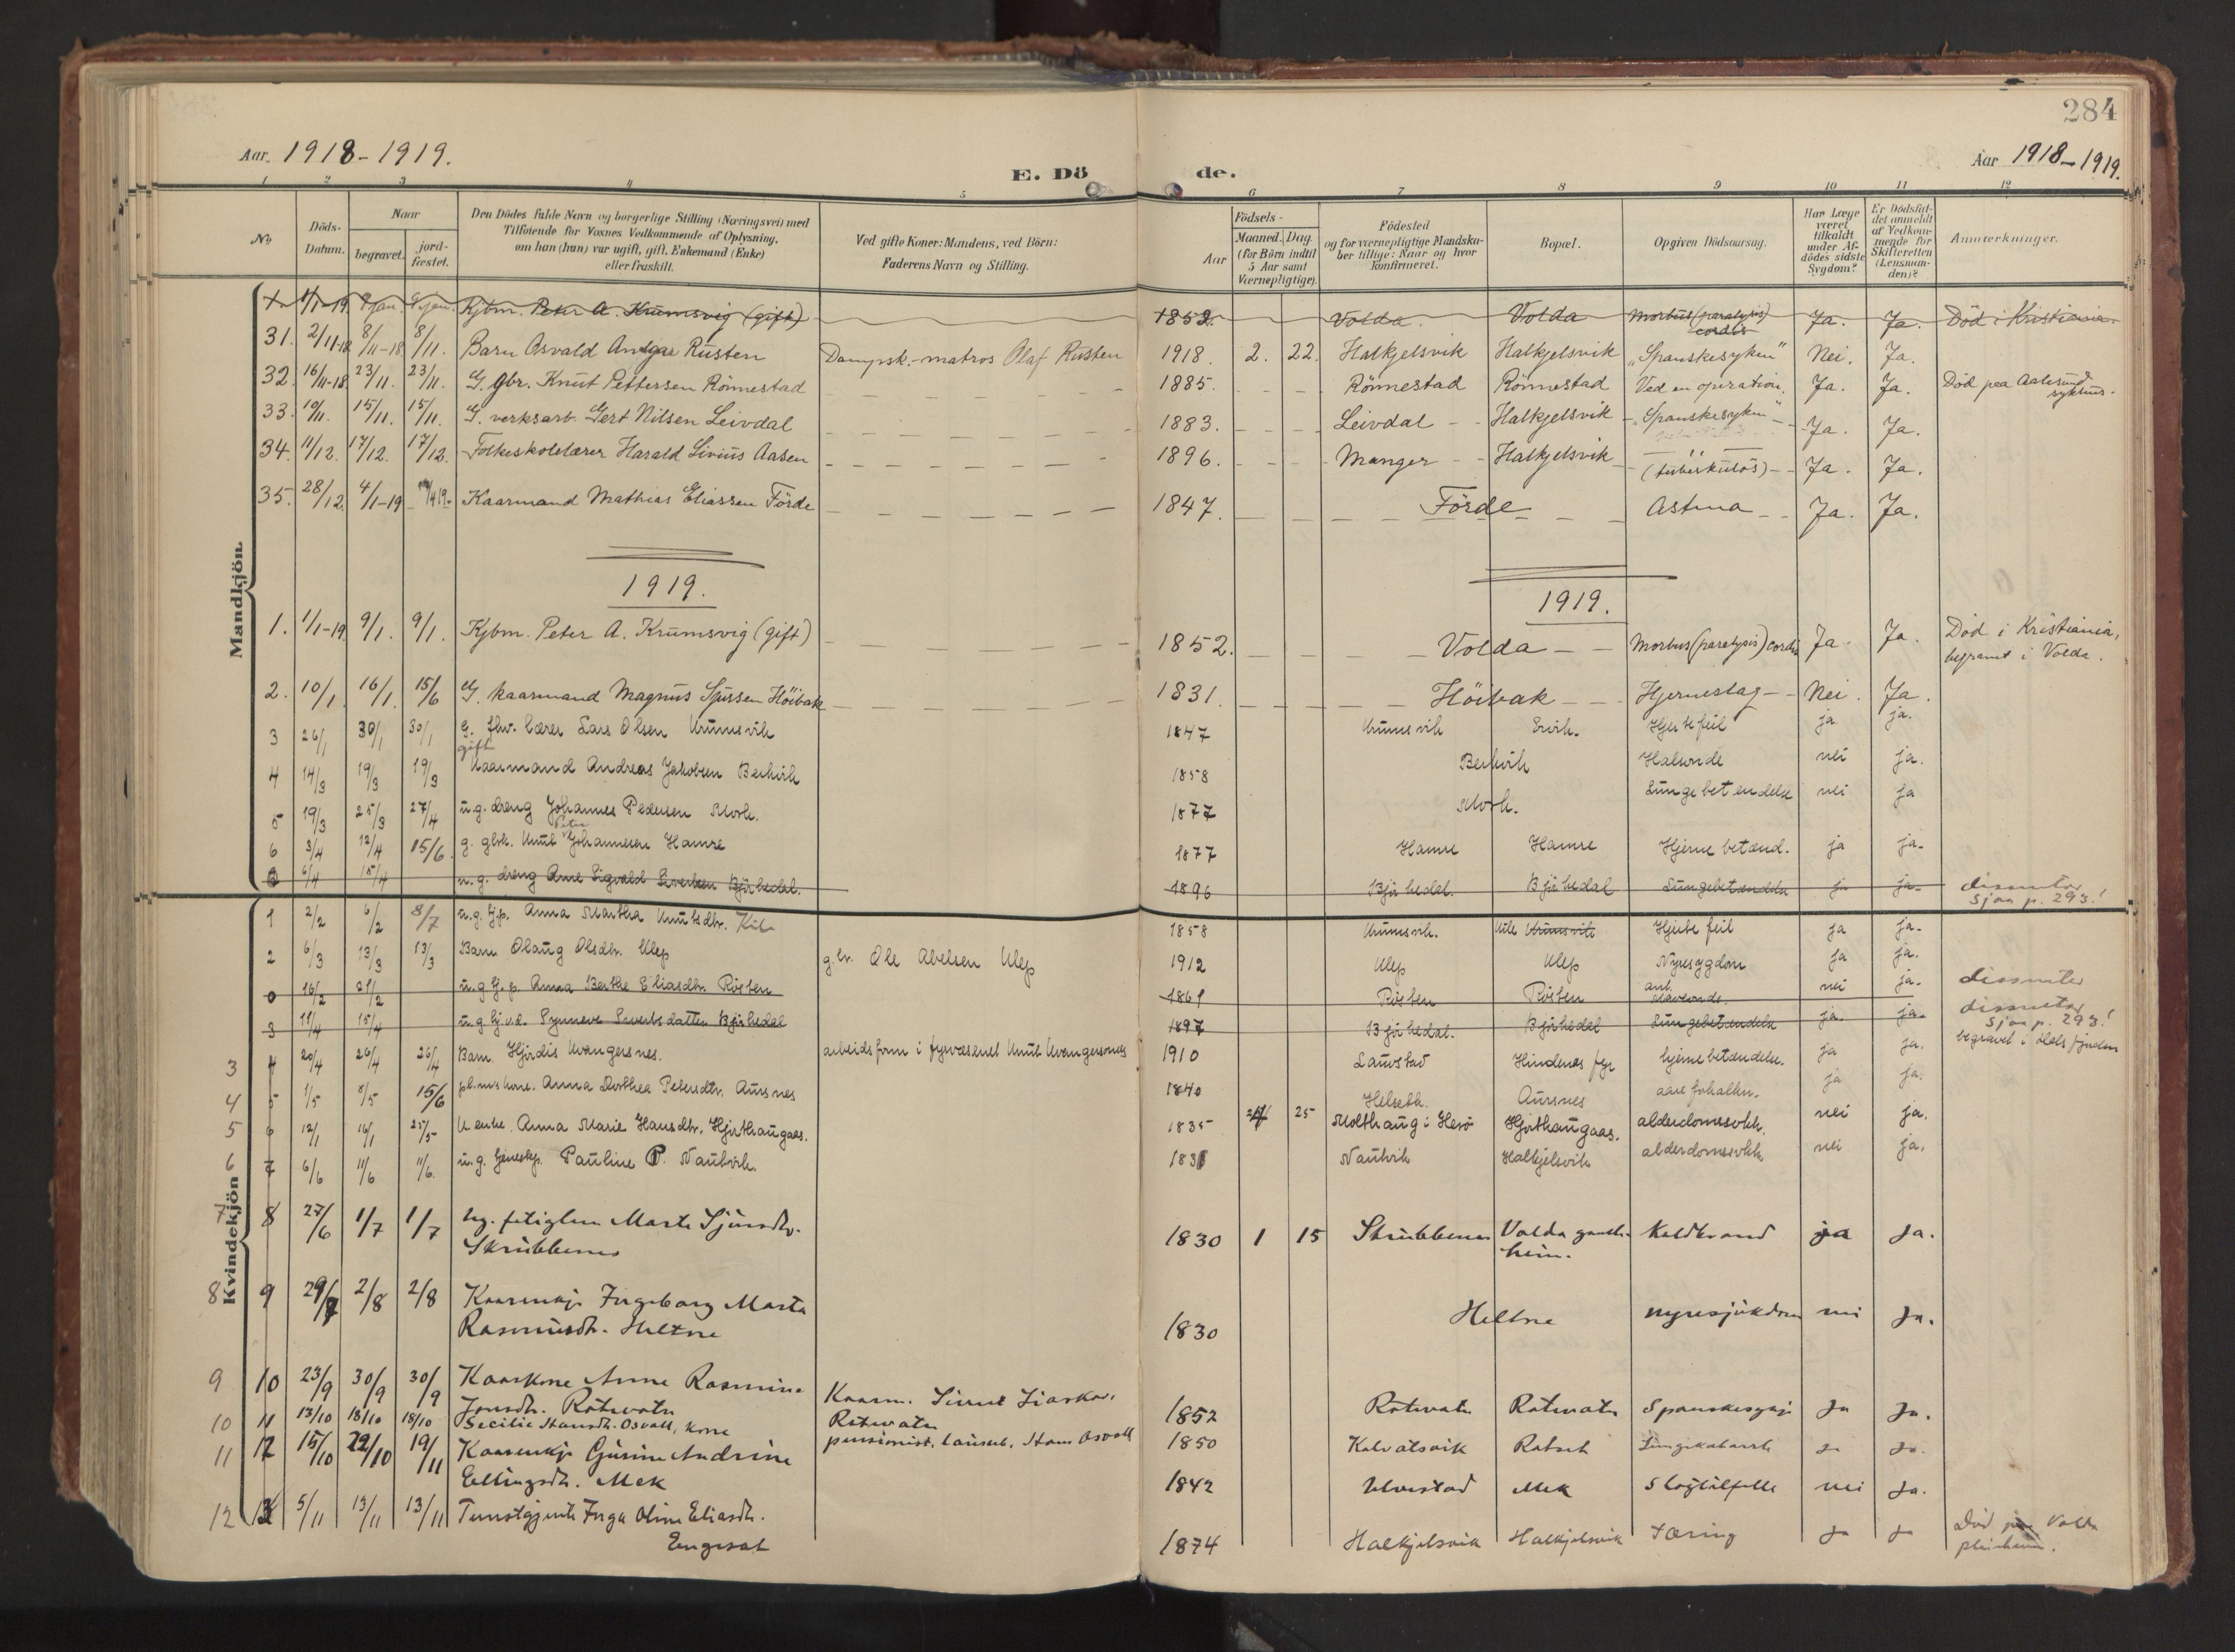 284
Aar. 1918-1919.
E. Dö de.
Aar 1918-1919.
1 2 3 4 5 6 7 8 9 10 11 12
No
Döds-Datum.
Naar
begravet.
jord-fæstet.
Den Dödes fulde Navn og borgerlige Stilling (Næringsvei) med
Tilföiende for Voxnes Vedkommende af Oplysning,
om han (hun) var ugift, gift, Enkemand (Enke)
eller fraskilt.
Ved gifte Koner: Mandens, ved Börn:
Faderens Navn og Stilling.
Födsels-
Aar
Maaned. Dag.
(for Börn indtil
5 Aar samt
Værnepligtige).
Födested
og for værnepligtige Mandska-
ber tillige: Naar og hvor
konfirmeret.
Bopæl.
Opgiven Dödsaarsag.
Har Læge
været
tilkaldt
under Af-
dödes sidste
Sygdom?
Er Dödsfal-
det anmeldt
af Vedkom-
mende for
Skifteretten
(Lensman-
den)?
Anmærkninger.
Mandkjön.
1/1-19 9 jan. 9 jan. Kjbm. Peter A. Krumsvig (gift) 1852. Volda. Volda Morbus (paralysis) cordis Ja. Ja. Död i Kristiania.
31. 2/11-18 8/11-18 8/11. Barn Osvald Ansgar Rusten Dampsk.-matros Olaf Rusten 1918. 2. 22. Halkjelsvik Halkjelsvik "Spanskesyken" Nei. Ja.
32. 16/11-18 23/11. 23/11. G. gbr. Knut Pettersen Rönnestad 1885. Rönnestad Rönnestad Ved en operation. Ja. Ja. Död paa Aalesund sykehus.
33. 10/11. 15/11. 15/11. G. verksarb. Gert Nilsen Leivdal 1883. Leivdal Halkjelsvik "Spanskesyken" Ja. Ja.
34. 11/12. 17/12. 17/12. Folkeskolelærer Harald Livius Aasen 1896. Manger Halkjelsvik (tuberkulös) Ja. Ja.
35. 28/12. 4/1-19 Kaarmand Mathias Eliassen Förde 1847. Förde Astma Ja. Ja.
1919. 1919.
1. 1/1-19 9/1. 9/1. Kjbm. Peter A. Krumsvig (gift) 1852. Volda Morbus (paralysis) cordis Ja. Ja. Död i Kristiania, begravet i Volda.
2. 10/1 16/1. 15/6 G. kaarmand Magnus Sjursen Höibak 1831. Höibak Hjerneslag Nei. Ja.
3 26/1 30/1 30/1 G. fhv. lærer Lars Olsen Krumsvik 1847 Krumsvik Ervik. Hjertefeil ja ja.
4 14/3 19/3 19/3 gift Kaarmand Andreas Jakobsen Berkvik 1858 Berkvik Halsonde nei ja.
5 19/3 25/3 27/4 u.g. dreng Johannes Pedersen Mork. 1877 Mork. Lungebetendelse nei ja
6 3/4 12/4 15/6. g. gbrk. Knut Peter Johannesen Hamre 1877 Hamre Hamre Hjernebetænd. ja ja.
6/4 15/4 u.g. dreng Arne Sigvald Sivertsen Bjørkedal. 1896 Bjørkedal. Bjørkedal Lungebetændelse ja ja. dissenter sjaa p. 293!
Kvindekjön
1 2/2 6/2 8/7 u.g. tj.p. Anna Martha Knutsdtr. Kile 1858 Krumsvik. Kile Krumsvik Hjertefeil ja ja.
2 6/3 13/3 13/3 Barn Olaug Olsdtr. Ulep g.br. Ole Abelsen Ulep 1912 Ulep Ulep Nyresygdom ja ja.
0 16/2 21/2 u.g. tj.p. Anna Berthe Eliasdtr. Røsten 1861 Røsten Røsten ant. Maveonde. nei ja. dissenter
3 11/4 15/4 u.g. Synneve Sivertsdatter Bjørkedal 1897 Bjørkedal. Bjørkedal Lungebetændelse ja. ja. dissenter sjaa p. 293!
3 4 20/4 26/4 26/4 Barn Hjördis Kvangersnes. arbeidsform i fyrvæsenet Knut Kvangersnes 1910 Laurstad Hindenes fyr hjernebetændelse. ja ja.
4 5 1/5 8/5 15/6 Anna Dorthea Petersdtr. Aursnes 1840 Helseth. Aursnes aareforkalkn. ja ja.
5 6 12/1 16/1 25/5 K. enke. Anna Marie Hansdtr. Hjorthaugaas. 1835 25 Molthaug i Herø Hjorthaugaas. alderdomssvekk. nei ja.
6 7 6/6 11/6 11/6. u.g. Pauline P. Nautvik. 1831 Nautvik Halkjelsvik alderdomssvekk nei ja.
7 8 27/6 1/7 1/7 ug. fatiglem Marte Sjursdtr. Skrubbenes 1830 1 15 Skrubbenes Volda gamleheim. Koldbrand ja Ja.
8 9 29/7 2/8 2/8 Kaarenkje Ingeborg Marta Rasmusdtr. Heltne 1830 Heltne nyresjukdom nei Ja.
9 10 23/9 30/9 30/9 Kaarkone Anne Rasmine Jonsdtr. Rotevatn Kaarm. Rotevatn 1852 Rotevatn Rotevatn Spanskesyke Ja Ja.
10 11 13/10 18/10 18/10 Secilie Hansdtr. Osvoll, kone pensionist. Hans Osvoll 1850 Kalvatsvik Rotset Lungekatarrh Ja Ja.
11 12 15/10 22/10 19/11 Kaarenkje Gurine Andrine Ellingsdtr. Mek 1842 Ulvestad Mek Slagtilfelle nei Ja.
12 13 5/11 13/11 13/11 Tenestgjente Inga Oline Eliasdtr. Engeset 1874 Halkjelsvik Halkjelsvik Tæring Ja Ja Död Volda pleieheim.